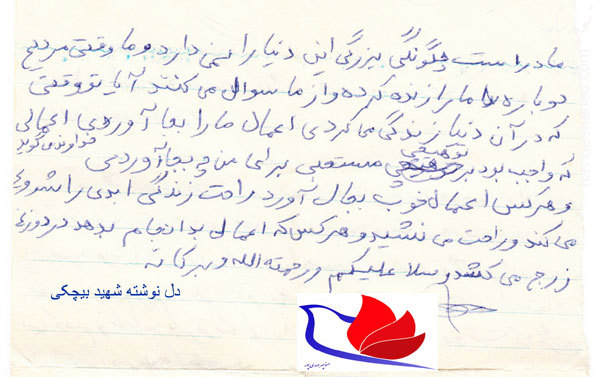 مادر است چگونگی بزرگی این دنیا را نمی دارد و ما وقتی مردیم
دوباره ما را زنده کرده و از ما سوال می کنند آیا تو وقتی
که در آن دنیا زندگی می کردی اعمال ما را بجا آوردی اعمالی
خداوند می گوید
که واجب بود بر تو مستحبی برای من چه بجا آوردی
و هر کس اعمال خوب بجال آورد راحت زندگی ابدی را شروع
می کند و راحت می نشید و هر کس که اعمال بد انجام بدهد در دوزخ
زرج می کشد و سلا علیکم و رحمته الله و برکاته
دل نوشته شهید بیچکی